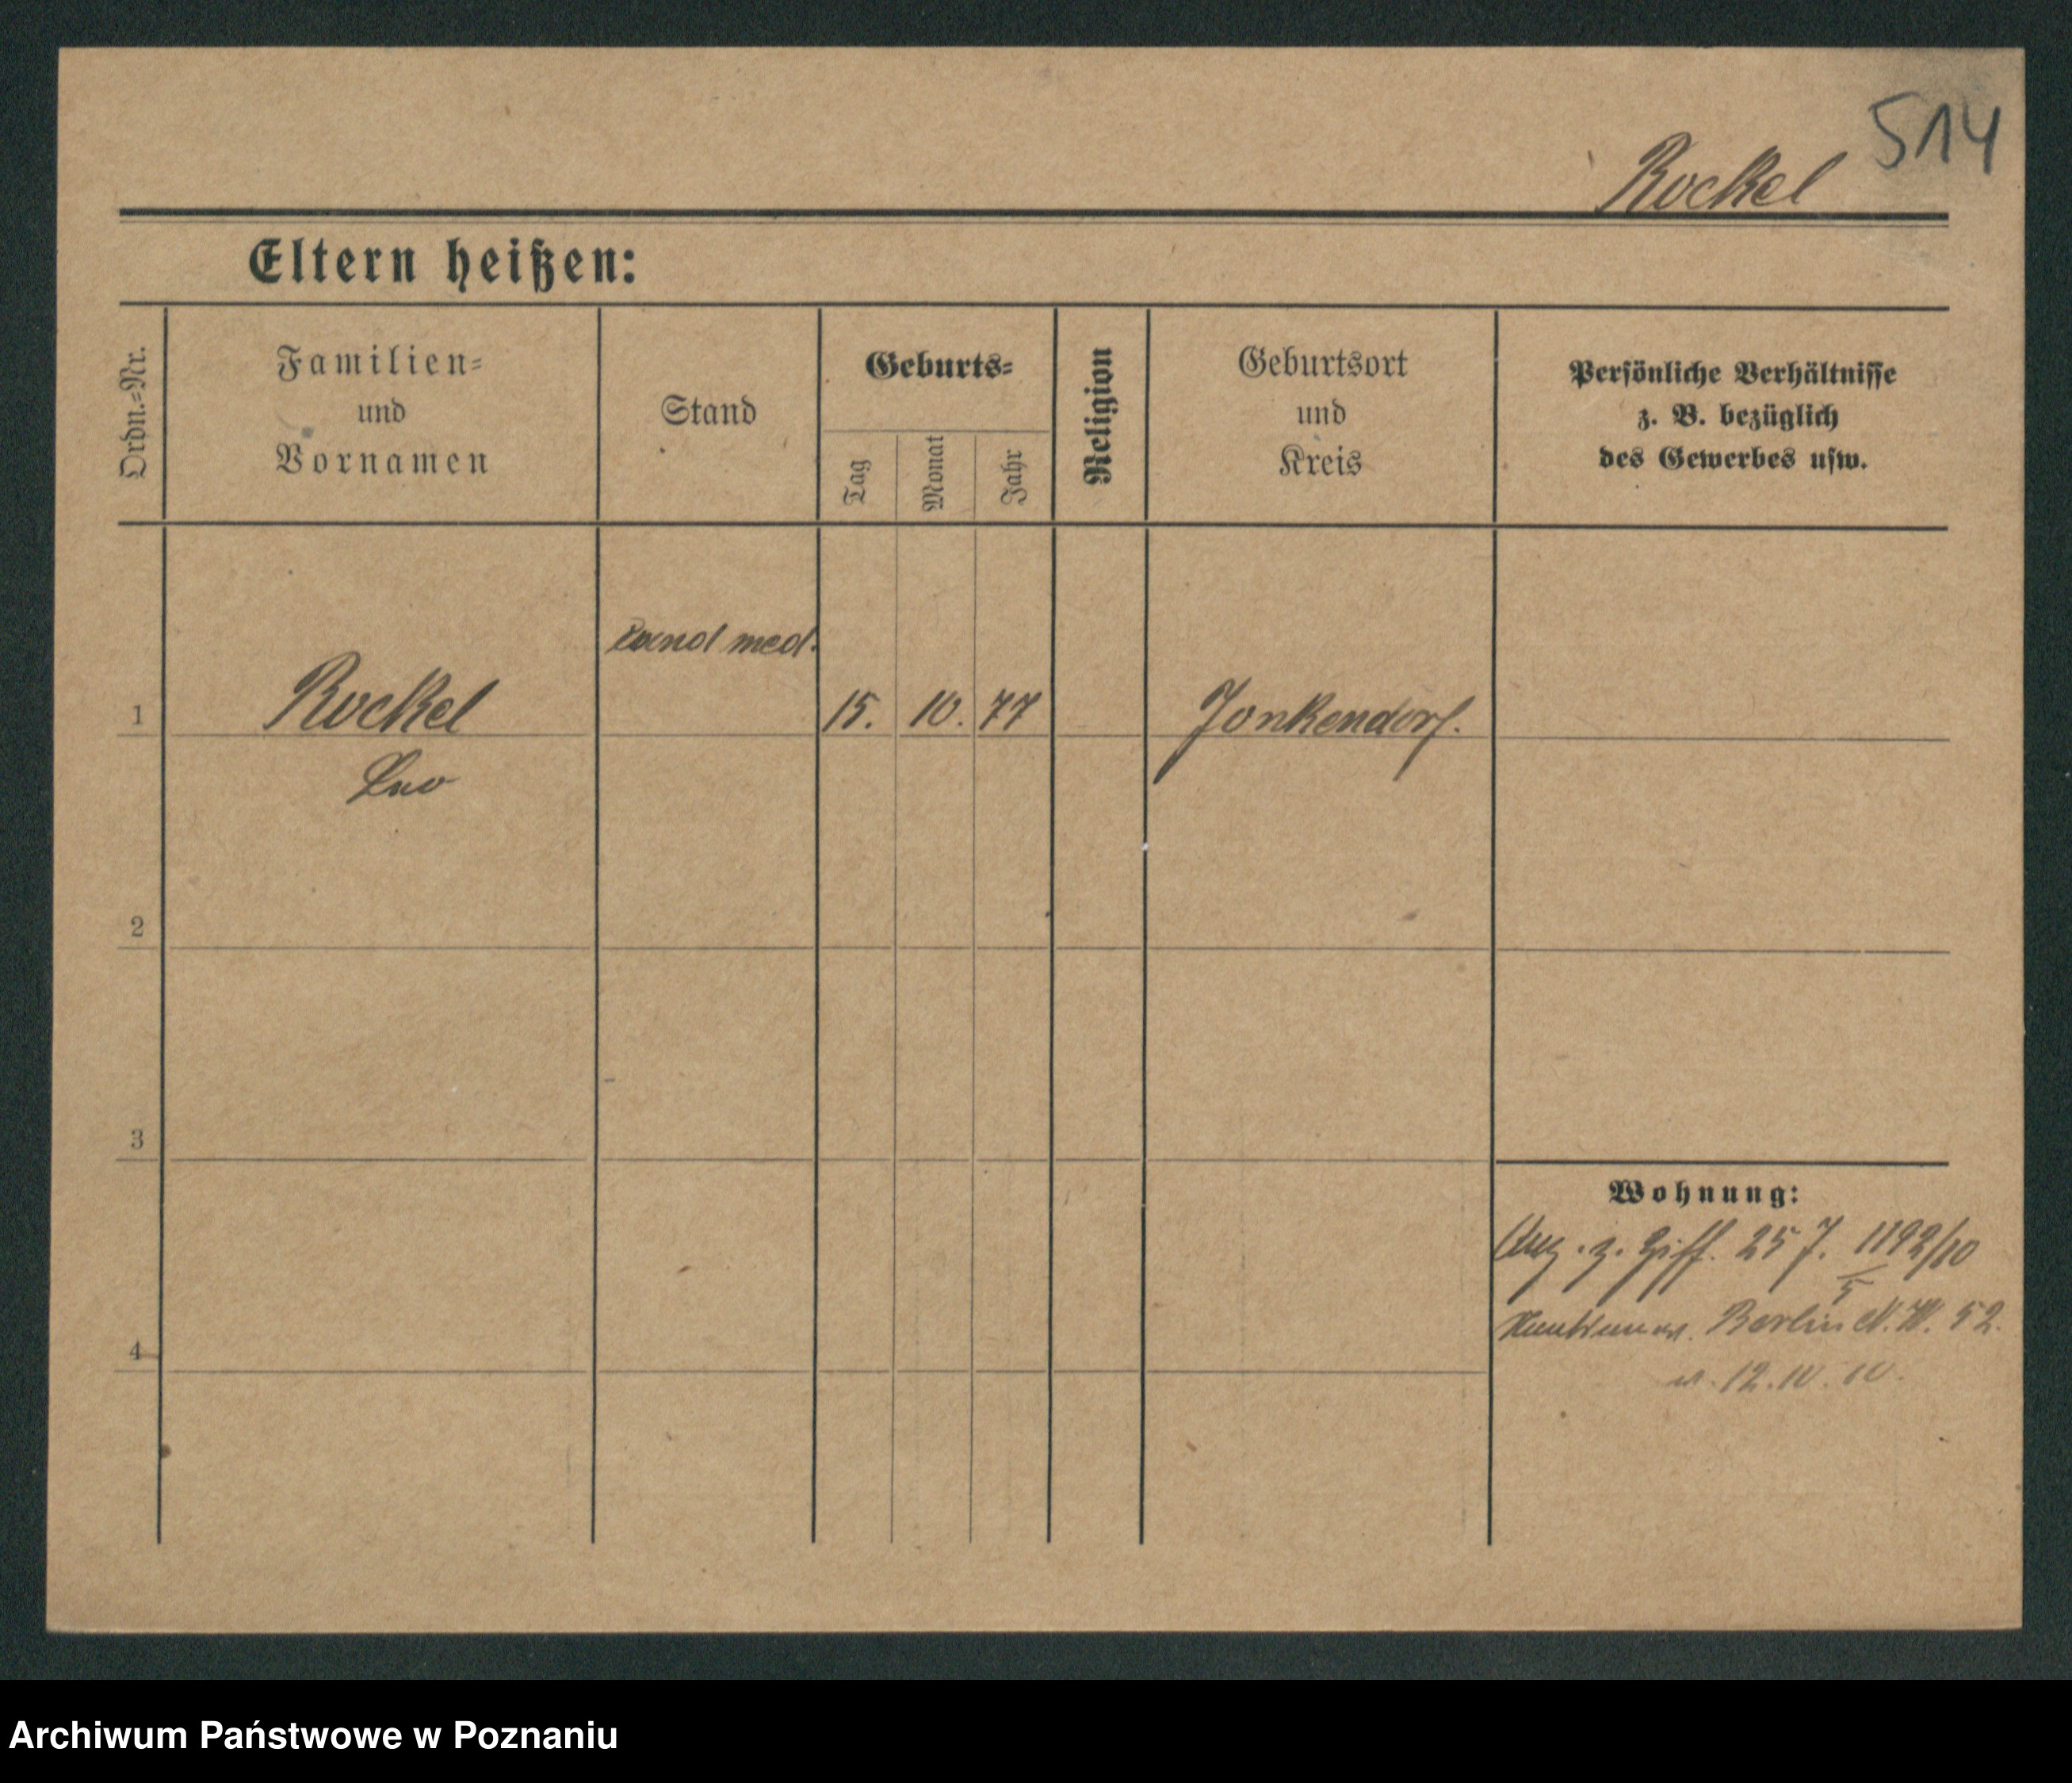 514
Rockel
Eltern heißen:
Ordn.-Nr.
Familien-
und
Vornamen
Stand
Geburts-
Tag
Monat
Jahr
Religion
Geburtsort
und
Kreis
Persönliche Verhältnisse
z. B. bezüglich
des Gewerbes usw.
1
Rockel
cand med.
15. 10. 77
Jonkendorf.
Leo
2
3
4
Wohnung:
z. Ziff. 25 J. 1192/10
5
Berlin N.W. 52.
12.10.10.
Archiwum Państwowe w Poznaniu